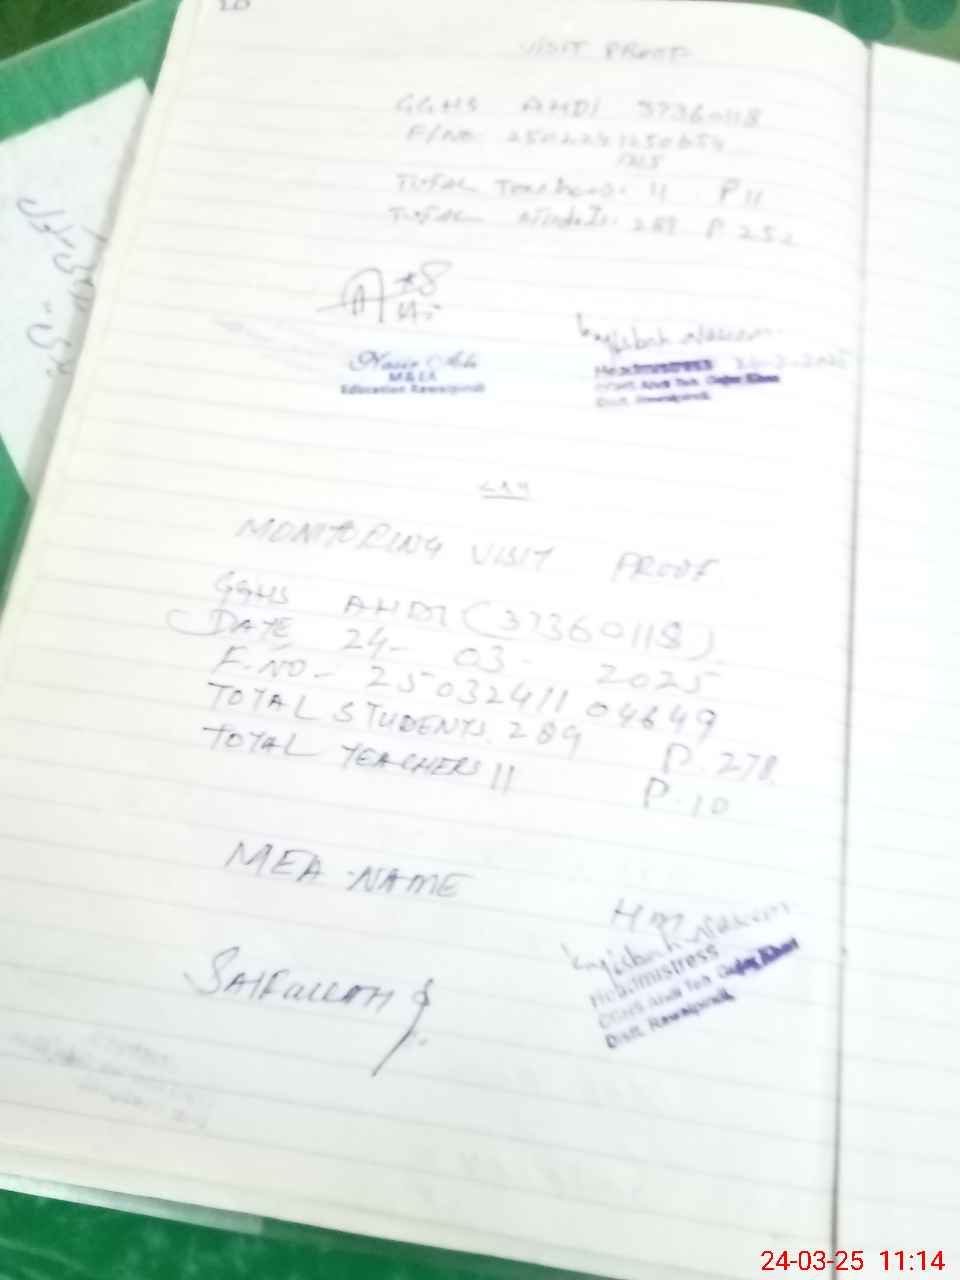 VISIT PROOF
GGHS AHDI 37360118
F/No:
TOTAL Teachers: 11 P 11
TOTAL Students: 289 P. 252
Nasir
M&EA
Education Rawalpindi
Headmistress
GGHS Ahdi Teh. Gujar Khan
Distt. Rawalpindi
MONITORING VISIT PROOF
GGHS AHDI (37360118)
DATE 24- 03- 2025
F.NO- 2503241104649
TOTAL STUDENTS. 289 P. 278
TOTAL TEACHERS 11 P. 10
MEA NAME
SAIFULLAH
HM
Headmistress
GGHS Ahdi Teh. Gujar Khan
Distt. Rawalpindi
24-03-25 11:14